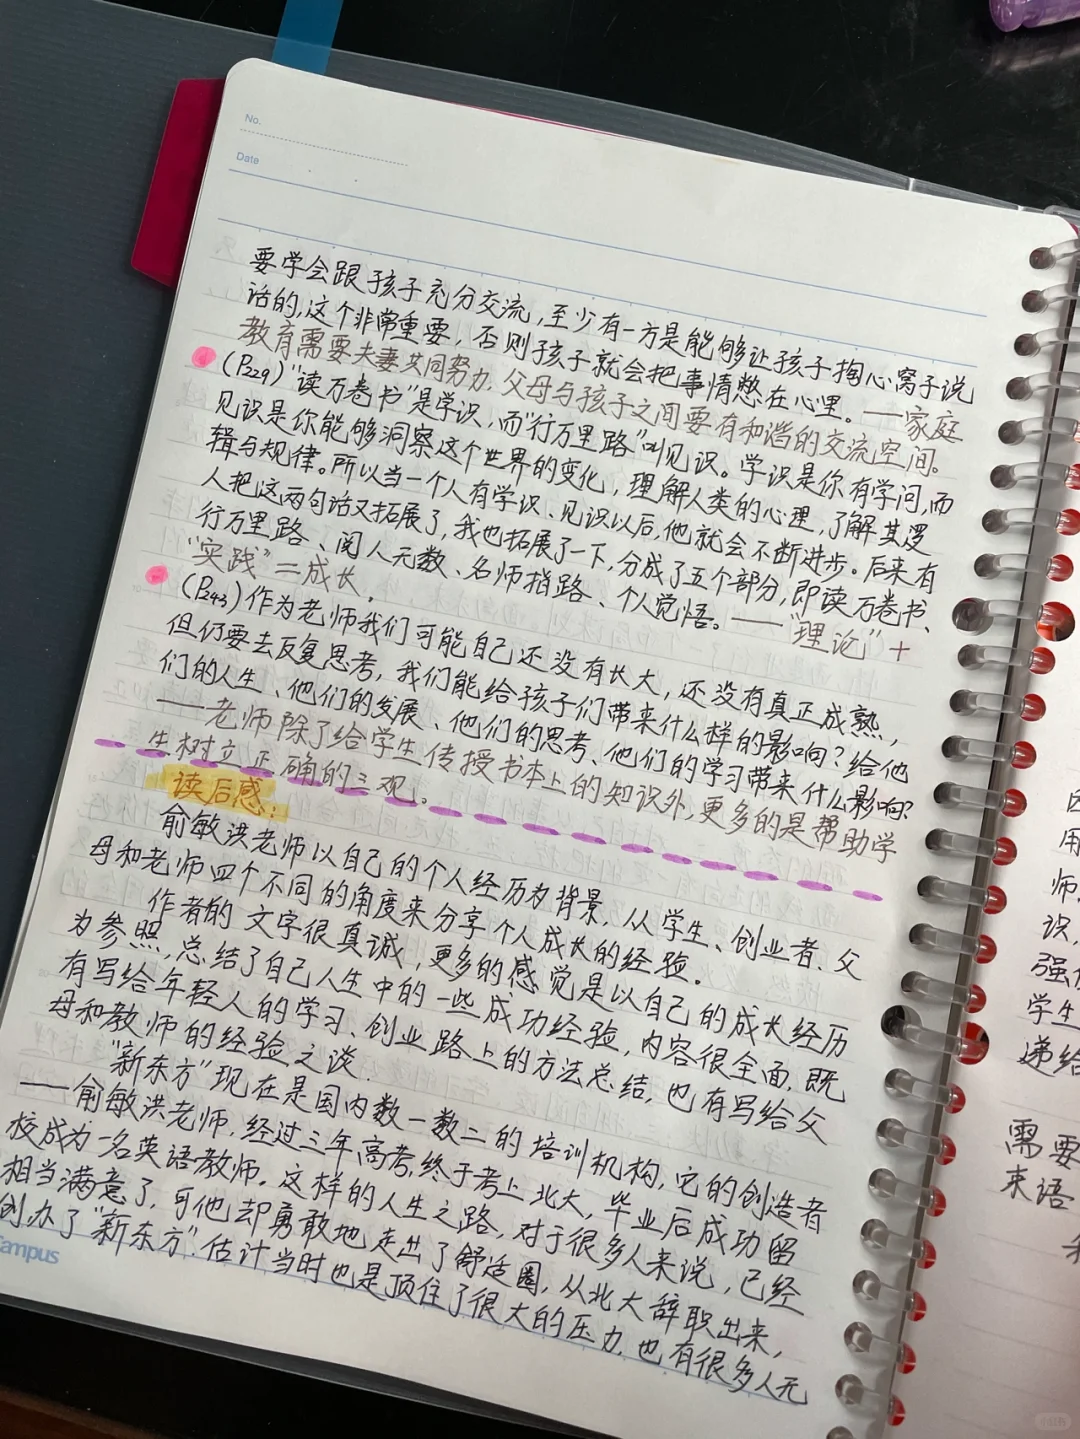 No.
Date
要学会跟孩子充分交流,至少有一方是能够让孩子掏心窝子说
话的,这个非常重要,否则孩子就会把事情憋在心里。——家庭
教育需要夫妻共同努力,父母与孩子之间要有和谐的交流空间。
(P229)“读万卷书”是学识,而“行万里路”叫见识。学识是你有学问,而
见识是你能够洞察这个世界的变化,理解人类的心理,了解其逻
辑与规律。所以当一个人有学识、见识以后,他就会不断进步。后来有
人把这两句话又拓展了,我也拓展了一下,分成了五个部分,即读万卷书、
行万里路、阅人无数、名师指路、个人觉悟。——“理论”+
“实践”=成长。
(P243)作为老师我们可能自己还没有长大,还没有真正成熟,
但仍要去反复思考,我们能给孩子们带来什么样的影响?给他
们的人生、他们的发展、他们的思考、他们的学习带来什么影响?
——老师除了给学生传授书本上的知识外,更多的是帮助学
生树立正确的三观。
读后感:
俞敏洪老师以自己的个人经历为背景,从学生、创业者、父
母和老师四个不同的角度来分享个人成长的经验。
作者的文字很真诚,更多的感觉是以自己的成长经历
为参照,总结了自己人生中的一些成功经验,内容很全面,既
有写给年轻人的学习、创业路上的方法总结,也有写给父
母和教师的经验之谈.
“新东方”现在是国内数一数二的培训机构,它的创造者
——俞敏洪老师,经过三年高考,终于考上北大,毕业后成功留
校成为一名英语教师。这样的人生之路,对于很多人来说,已经
相当满意了,可他却勇敢地走出了舒适圈,从北大辞职出来,
创办了“新东方”.估计当时也是顶住了很大的压力,也有很多人无
Campus
用
师,
识,
学生
递给
需要
来语
小红书